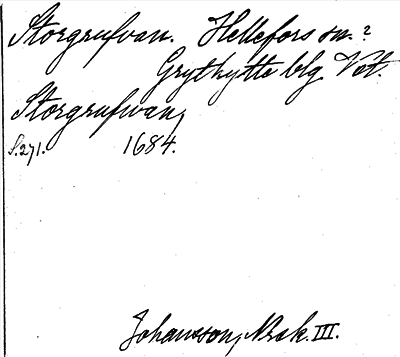 Storgrufvan. Hellefors sn.?
Grythytte blg. Vstml.
Storgrufwan,
S.271. 1684.
Johansson, Norask. III.